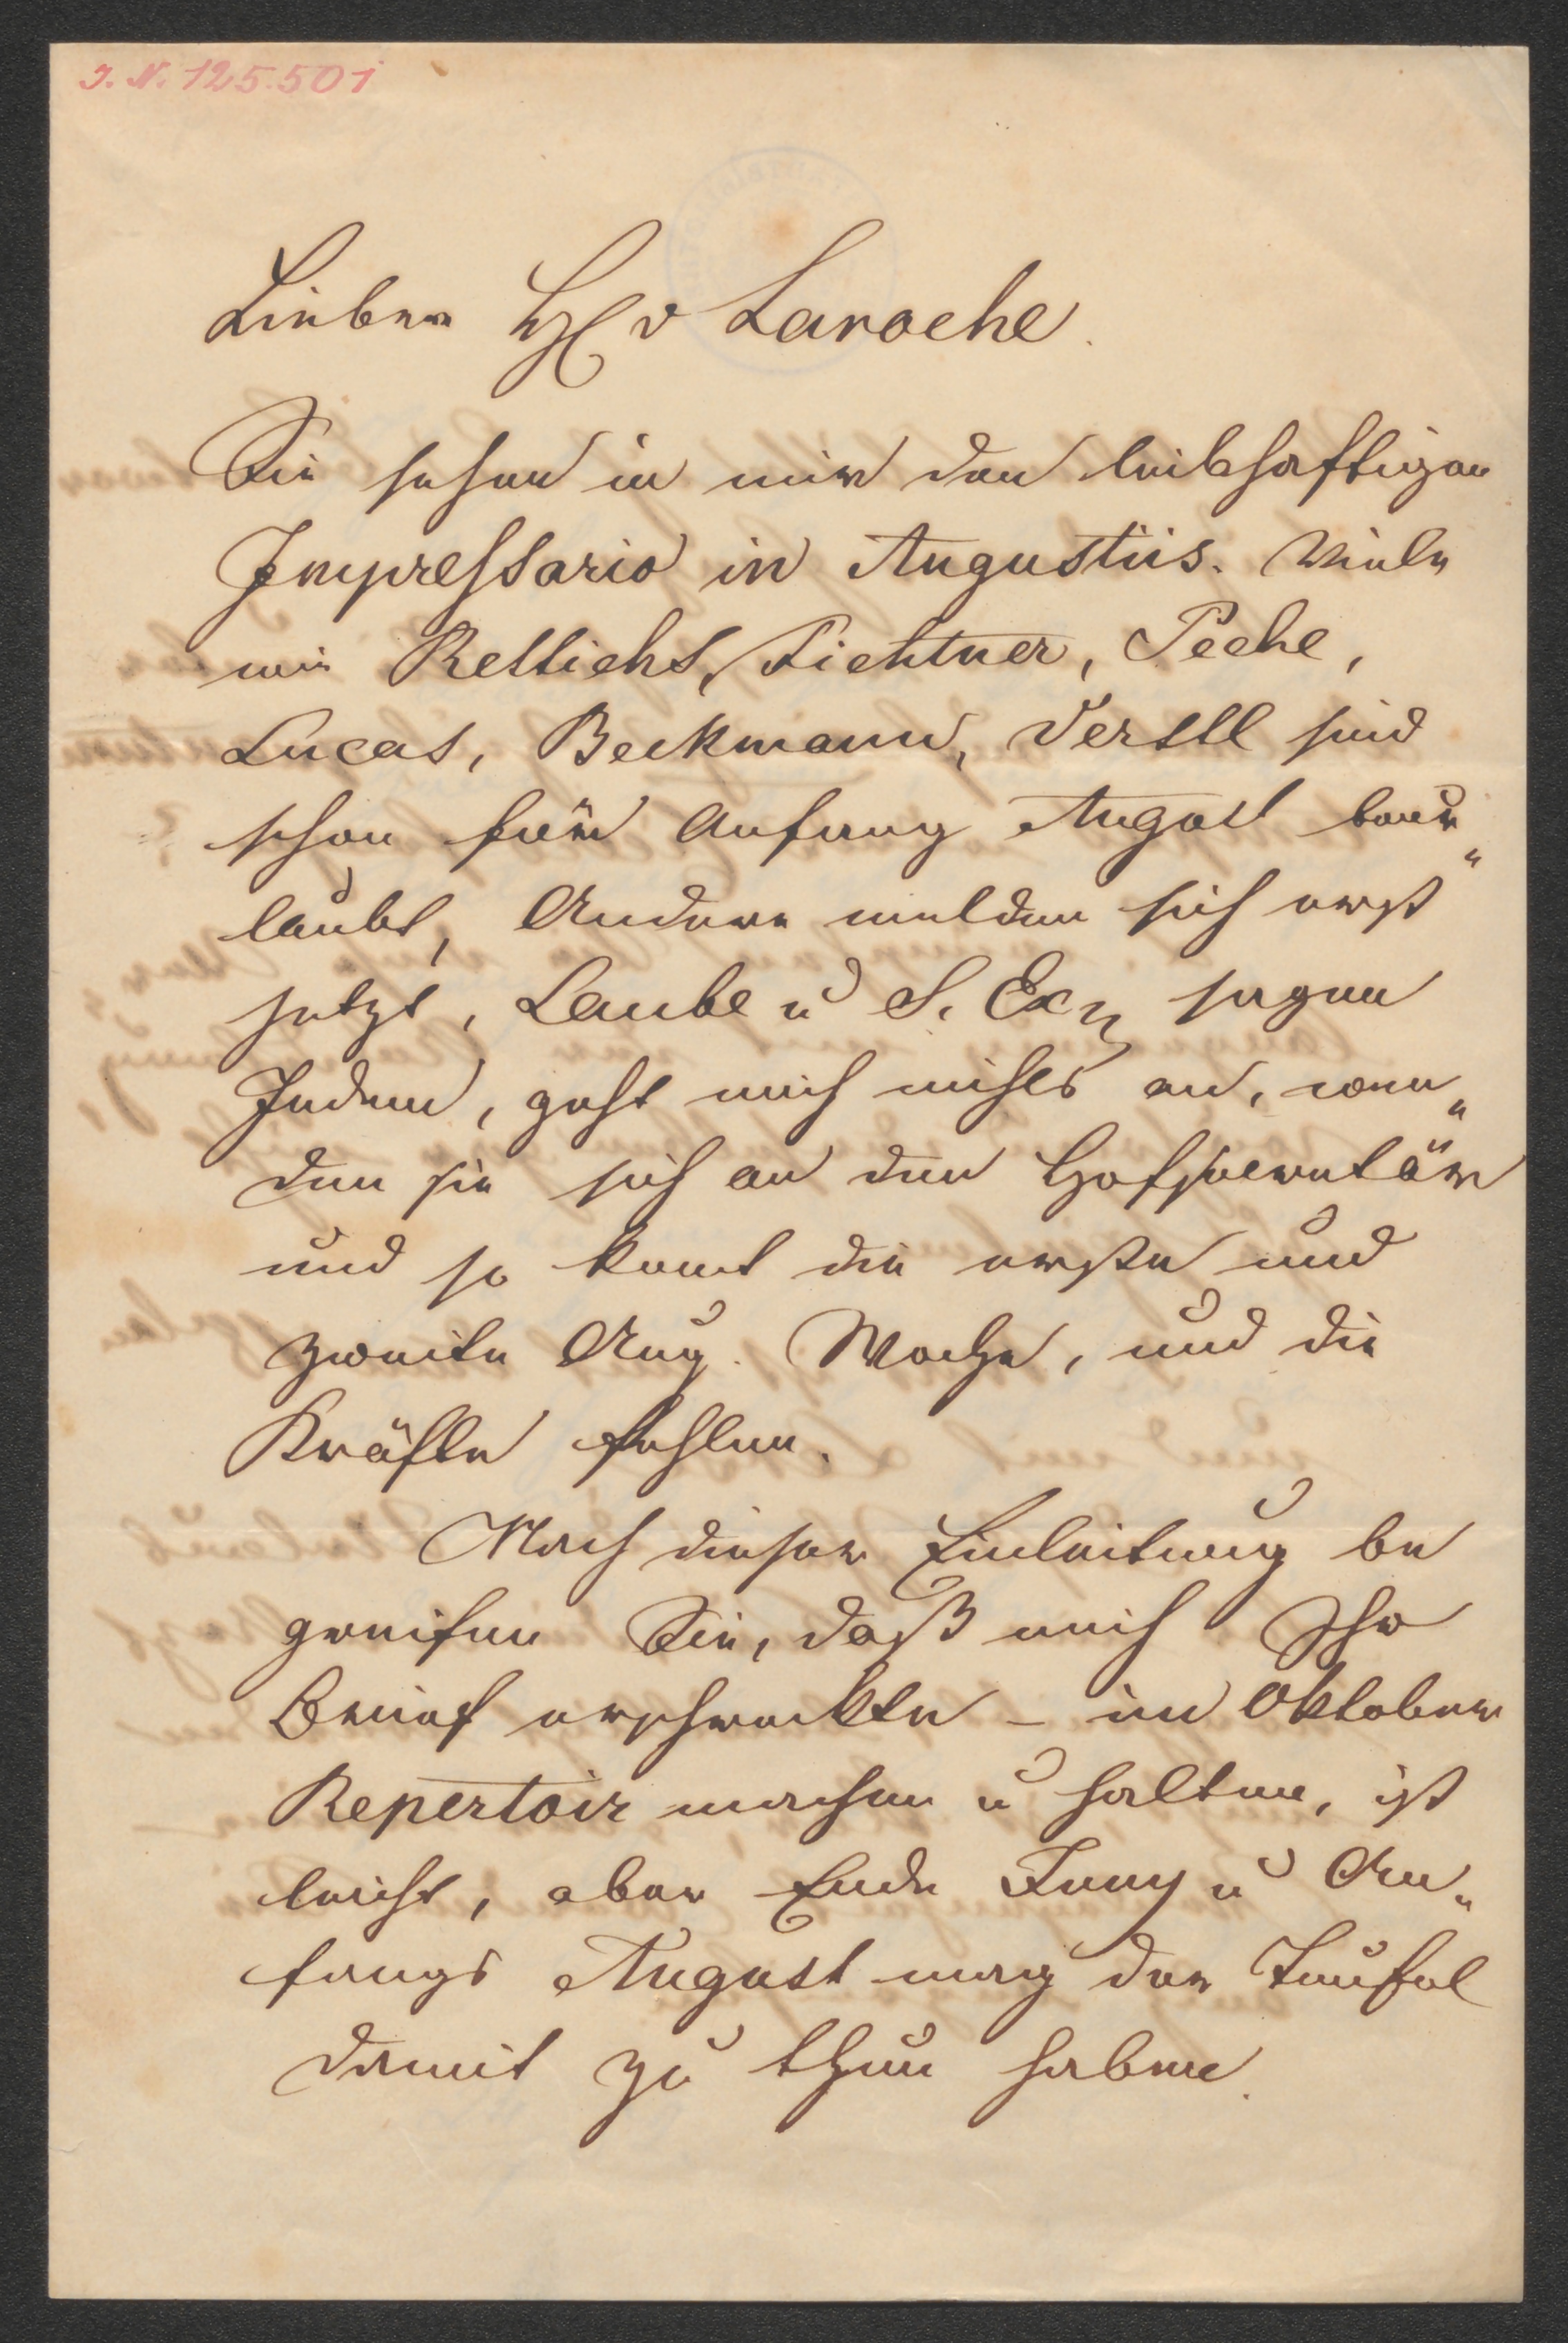 I. N. 125.501
Lieber H v Laroche.
Sie sehen in mir den leibhaftigen
Impressario in Augustiis. Viele
wie Rettichs, Fichtner, Peche,
Lucas, Beckmann, Verstl sind
schon für Anfang August beur„
laubt, Andere melden sich erst
jetzt, Laube u S. Exz sagen
Jedem, geht mich nichts an, wen„
den sie sich an den Hofsecretär
und so komt die erste und
zweite Aug. Woche, und die
Kräfte fehlen.
Nach dieser Einleitung be
greifen Sie, daß mich Ihr
Brief erschreckte – im Oktober
Repertoir machen u halten, ist
leicht, aber Ende Juny u An„
fangs August mag der Teufel
damit zu thun haben.